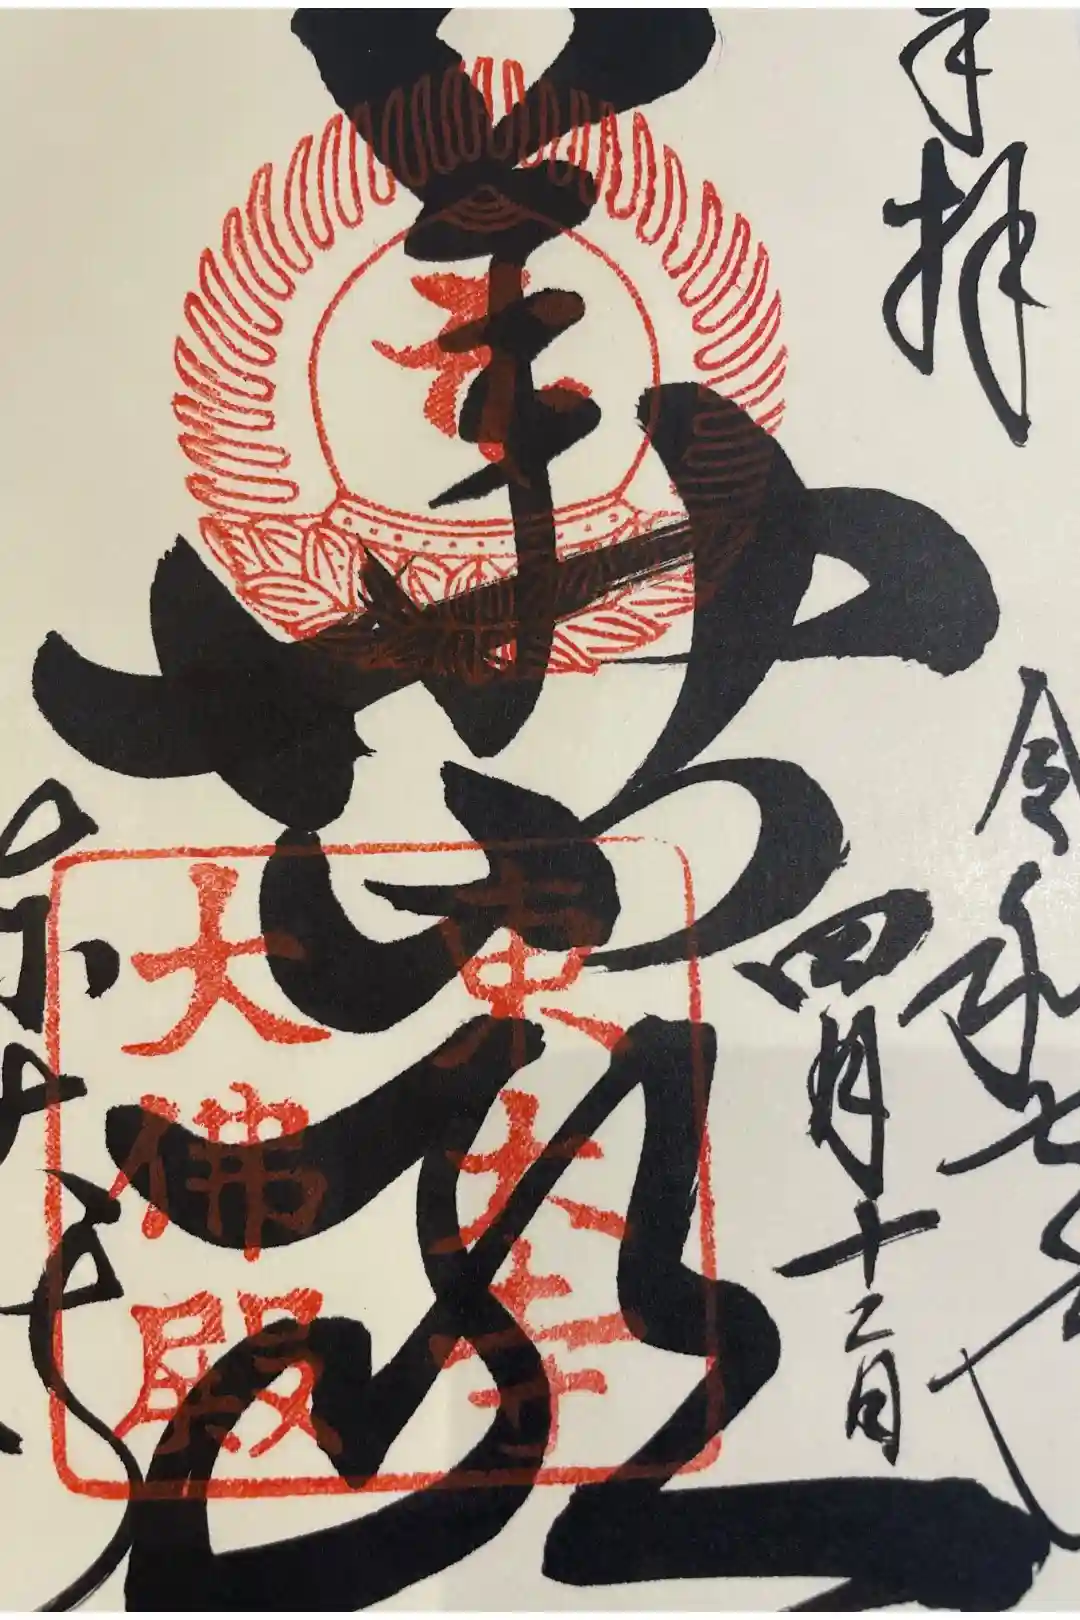 奉拝
令和七年
四月十二日
華嚴
東大寺
東大寺
大佛殿